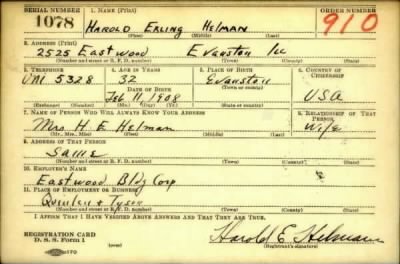 SERIAL NUMBER 1. NAME (Print) ORDER NUMBER
1078 HAROLD ERLING HELMAN 910
(First) (Middle) (Last)
2. ADDRESS (Print)
2525 Eastwood Evanston Ill
(Number and street or R. F. D. number) (Town) (County) (State)
3. TELEPHONE 4. AGE IN YEARS 5. PLACE OF BIRTH 6. COUNTRY OF CITIZENSHIP
UNI 5328 32 Evanston
DATE OF BIRTH (Town or county)
Feb 11 1908 USA
(Exchange) (Number) (Mo.) (Day) (Yr.) (State or country)
7. NAME OF PERSON WHO WILL ALWAYS KNOW YOUR ADDRESS 8. RELATIONSHIP OF THAT PERSON
Mrs H. E. Helman Wife
(Mr., Mrs., Miss) (First) (Middle) (Last)
9. ADDRESS OF THAT PERSON
Same
(Number and street or R. F. D. number) (Town) (County) (State)
10. EMPLOYER'S NAME
Eastwood Bldg Corp
11. PLACE OF EMPLOYMENT OR BUSINESS
Quinlan & Tyson
(Number and street or R. F. D. number) (Town) (County) (State)
I AFFIRM THAT I HAVE VERIFIED ABOVE ANSWERS AND THAT THEY ARE TRUE.
REGISTRATION CARD
D. S. S. Form 1 Harold E Helman
(Registrant's signature)